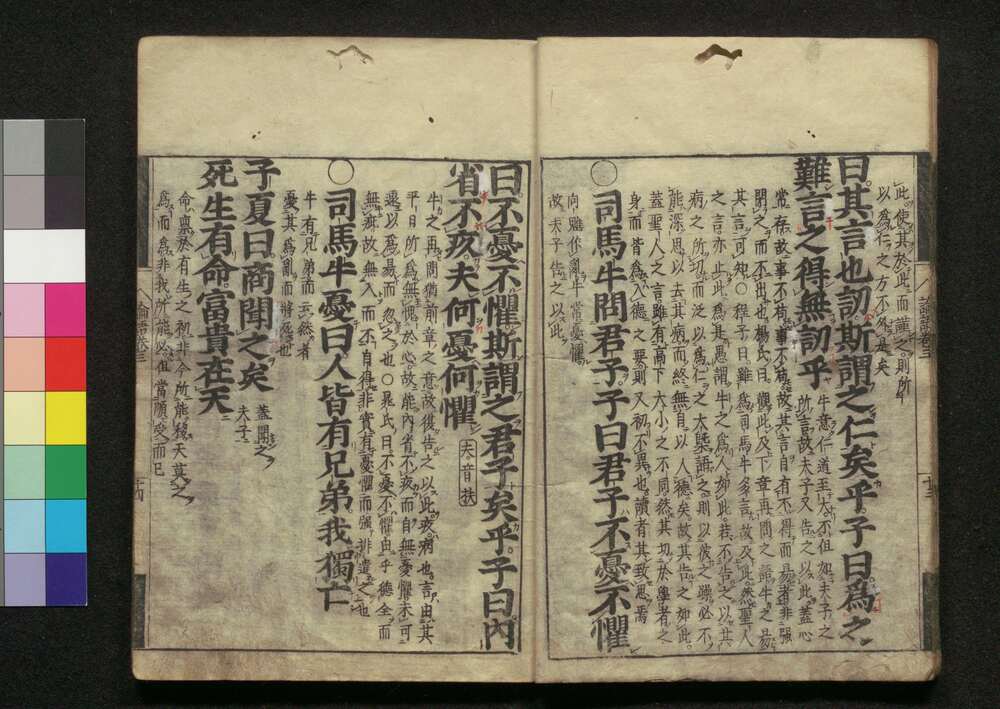 論語卷三
十三
此使其於此而謹之則所
以爲仁之方不外是矣
曰其言也訒斯謂之仁矣乎子曰爲之
難言之得無訒乎
牛意仁道至大不但如夫子之
所言故夫子又告之以此蓋心
常存故事不苟事不苟故其言自有不得而易者非強
閉之而不出也楊氏曰觀此及下章再問之語牛之易
其言可知○程子曰雖爲司馬牛多言故及此然聖人
之言亦止此爲是愚謂牛之爲人如此若不告之以其
病之所切而泛以爲仁之大槩語之則以彼之躁必不
能深思以去其病而終無自以入德矣故其告之如此
蓋聖人之言雖有高下大小之不同然其切於學者之
身而皆爲入德之要則又初不異也讀者其致思焉
○司馬牛問君子子曰君子不憂不懼
向魋作亂牛常憂懼
故夫子告之以此
曰不憂不懼斯謂之君子矣乎子曰内
省不疚夫何憂何懼
夫音扶
牛之再問猶前章之意故復告之以此疚病也言由其
平日所爲無愧於心故能内省不疚而自無憂懼未可
遽以爲易而忽之也○晁氏曰不憂不懼由乎德全而
無疵故無入而不自得非實有憂懼而強排遣之也
○司馬牛憂曰人皆有兄弟我獨亡
牛有兄弟而云然者
憂其爲亂而將死也
子夏曰商聞之矣
蓋聞之
夫子
死生有命富貴在天
命稟於有生之初非今所能移天莫之
爲而爲非我所能必但當順受而已
論語卷三
十四